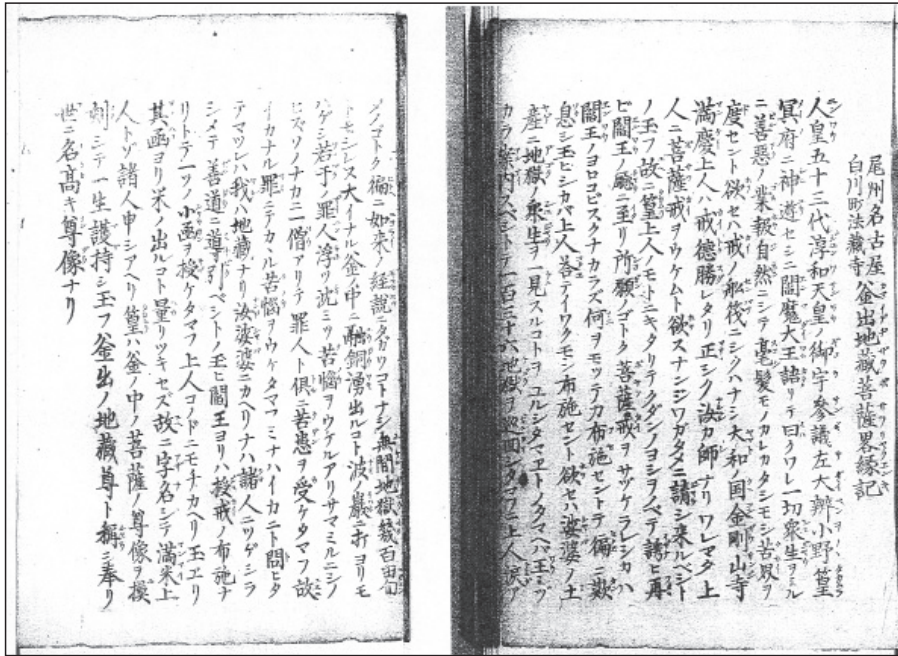 尾州名古屋
白川町法蔵寺 釜出地蔵菩薩畧縁記
人皇五十三代淳和天皇ノ御宇参議左大辨小野ノ篁
冥府ニ神遊セシニ閻魔大王語リテ曰クワレ一切衆生ヲミル
ニ善悪ノ業報自然ニシテ毫髪モノカレカタシモシ苦界ヲ
度セント欲セハ戒ノ船筏ニシクハナシ大和ノ国金剛山寺
満慶上人ハ戒徳勝レタリ正シク汝カ師ナリワレマタ上
人ニ菩薩戒ヲウケムト欲スナンジワガタメニ請シ来ルベシト
ノ玉フ故ニ篁上人ノモトニキタリテクダンノヨシヲノベテ誘ヒ再
ビ閻王ノ廰ニ至リ所願ノゴトク菩薩戒ヲサヅケラレシカハ
閻王ノヨロコビスクナカラズ何ヲモッテカ布施セントテ偏ニ歎
息シ玉ヒシカバ上人答テイワクモシ布施セント欲セハ娑婆ノ土
産ニ地獄ノ衆生ヲ一見スルコトヲユルシタマヱトノタマヘバ王ミヅ
カラ案内スベシトテ一百三十六地獄ヲ巡回シタマフニ上人涙ア
メノゴトク偏ニ如来ノ経説ニタガワコトナシ無間地獄幾百由旬
トモシレス大イナル釜ノ中ニ融銅湧出ルコト波ノ巌ニ打ヨリモ
ハゲシ若干ノ罪人浮ツ沈ミツ苦悩ヲウケルアリサマミルニシノ
ヒスソノナカニ一僧アリテ罪人ト倶ニ苦患ヲ受ケタマフ故
イカナル罪ニテカヽル苦悩ヲウケタマフミナハイカニト問ヒタ
テマツレハ我ハ地蔵ナリ汝娑婆ニカヘリナハ諸人ニツゲシラ
シメテ善道ニ導引ベシトノ玉ヒ閻王ヨリハ授戒ノ布施ナ
リトテ一ツノ小函ヲ授ケタマフ上人コノドニモチカヘリ玉ヱリ
其函ヨリ米ノ出ルコト量リツキセズ故ニ字名シテ満米上
人トゾ諸人申シアヘリ篁ハ釜ノ中ノ菩薩ノ尊像ヲ模
刻シテ一生護持シ玉フハ釜出ノ地蔵尊ト稱シ奉リ
世ニ名高キ尊像ナリ